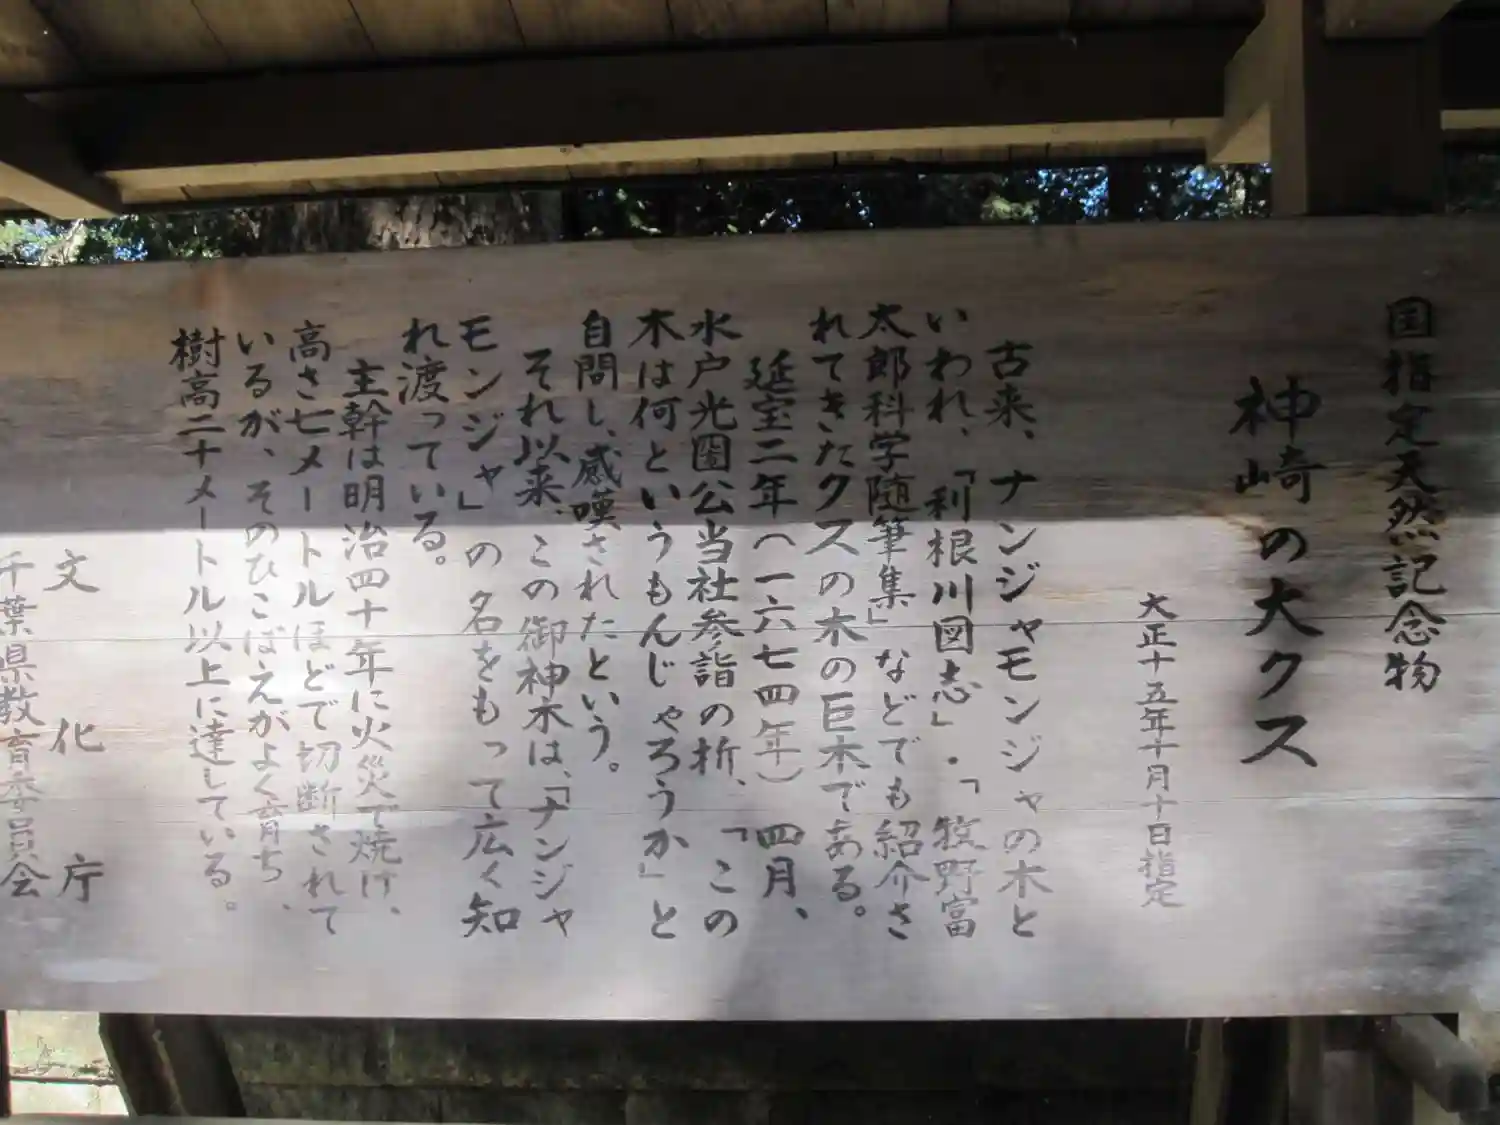 国指定天然記念物
神崎の大クス
大正十五年十月十日指定
古来、ナンジャモンジャの木と
いわれ、「利根川図志」・「牧野富
太郎科学随筆集」などでも紹介さ
れてきたクスの木の巨木である。
延宝二年(一六七四年)四月、
水戸光圀公当社参詣の折、「この
木は何というもんじゃろうか」と
自問し、感嘆されたという。
それ以来、この御神木は、「ナンジャ
モンジャ」の名をもって広く知
れ渡っている。
主幹は明治四十年に火災で焼け、
高さ七メートルほどで切断されて
いるが、そのひこばえがよく育ち、
樹高二十メートル以上に達している。
文化庁
千葉県教育委員会